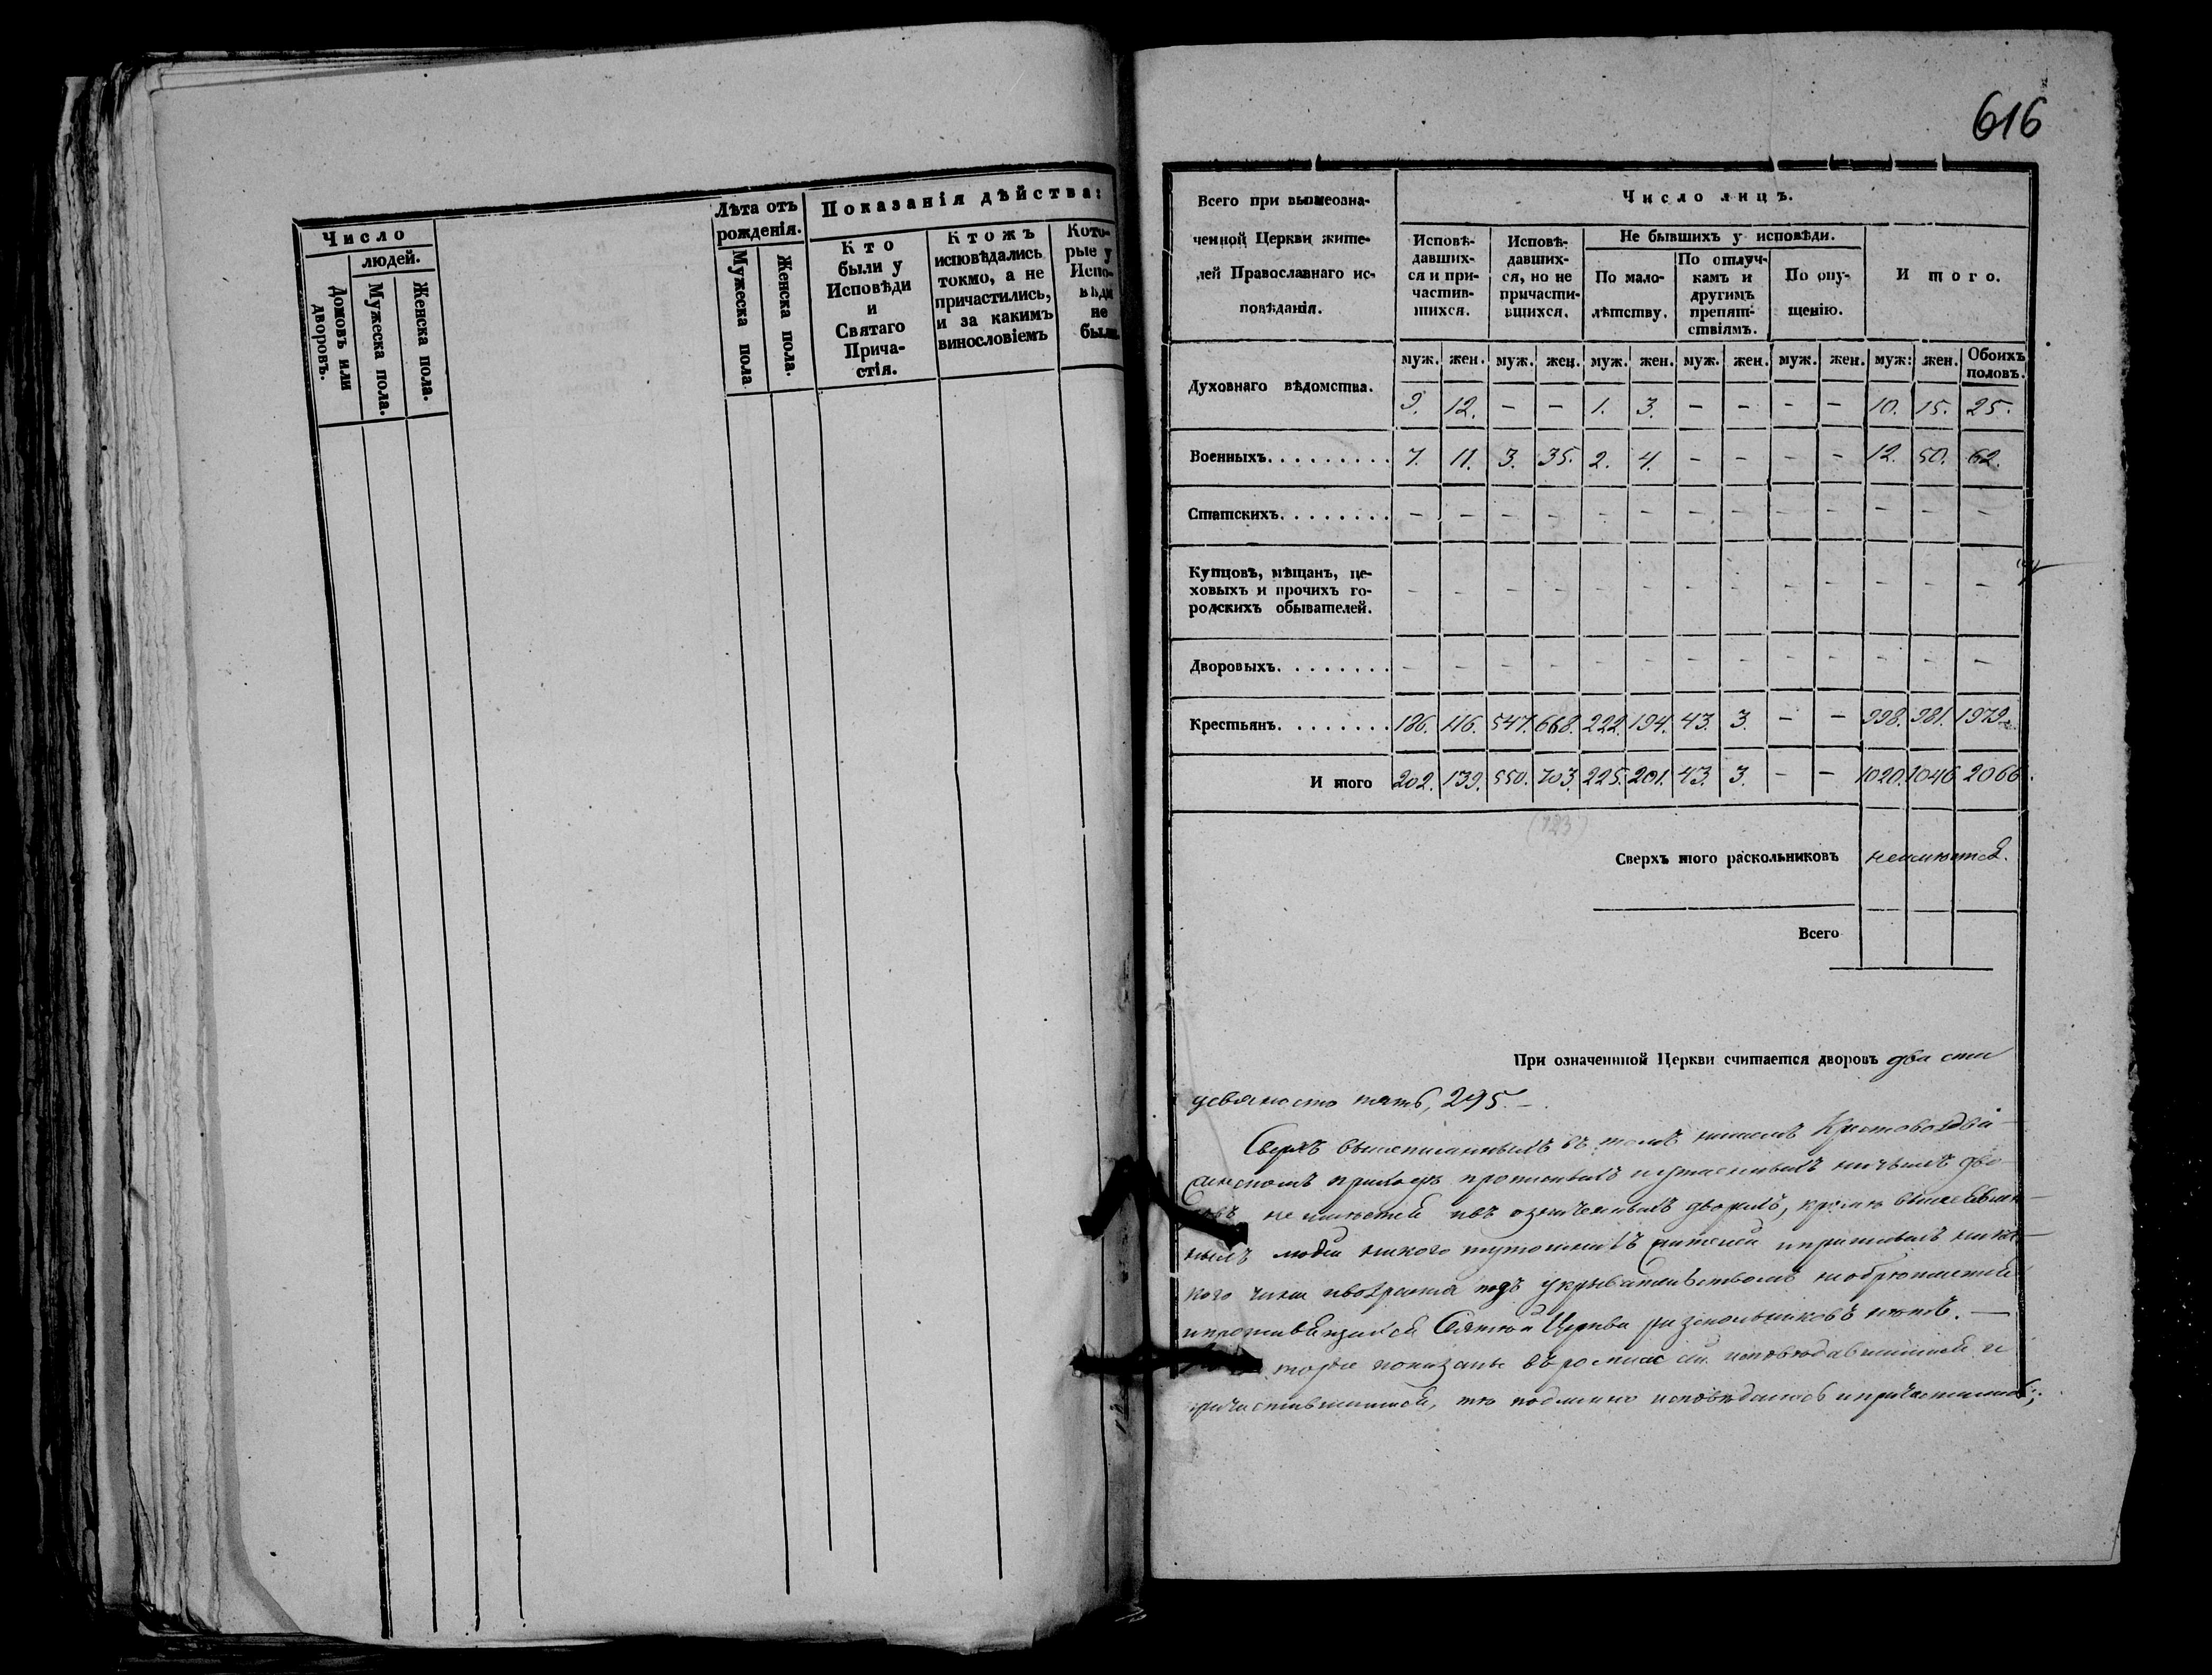 616
Число
людей.
Домовъ или дворовъ.
Мужеска пола.
Женска пола.
Лѣта отъ рожденія.
Мужеска пола
Женска пола.
Показанія дѣйства:
Кто были у Исповѣди и Святаго Прича-стія.
Ктожъ исповѣдались токмо, а не причастились, и за какимъ винословіемъ
Кото-рые у Испо-вѣди не были.
Всего при вышеозна-
ченной Церкви жите-
лей Православнаго ис-
повѣданія.
Число лицъ.
Исповѣ-давших-ся и при-частив-шихся.
Исповѣ-давших-ся, но не причасти-вшихся.
Не бывшихъ у исповѣди.
По мало-лѣтству.
По отлуч-камъ и другимъ препят-ствіямъ.
По опу-щенію.
И того.
муж. жен. муж. жен. муж. жен. муж. жен. муж. жен. муж: жен. Обоихъ половъ.
Духовнаго вѣдомства. 9. 12. – – 1. 3. – – – – 10. 15. 25.
Военныхъ......... 7. 11. 3. 35. 2. 4. – – – – 12. 50. 62.
Статскихъ........ – – – – – – – – – – – – –
Купцовъ, мѣщанъ, це-
ховыхъ и прочихъ го-
родскихъ обывателей. – – – – – – – – – – – – –
Дворовыхъ........ – – – – – – – – – – – – –
Крестьянъ........ 186. 116. 547. 668. 222. 194. 43. 3. – – 998. 981. 1979.
И того 202. 139. 550. 703. 225. 201. 43. 3. – – 1020. 1046 2066.
(723)
Сверхъ того раскольниковъ неимѣется.
Всего
При означеннной Церкви считается дворовъ два ста
девяносто пять, 295. –
Сверхъ вышеписанныхъ въ томъ
приходѣ
неимѣется въ означенныхъ дворахъ, кромѣ
людей никого жителей
кого чина и возраста подъ укрывательствомъ необрѣтается
Святѣй Церкви раскольниковъ нѣтъ. –
показаны въ росписи сей исповѣдавшимися и
причастившимися, тѣ подлинно исповѣдались и причастились;